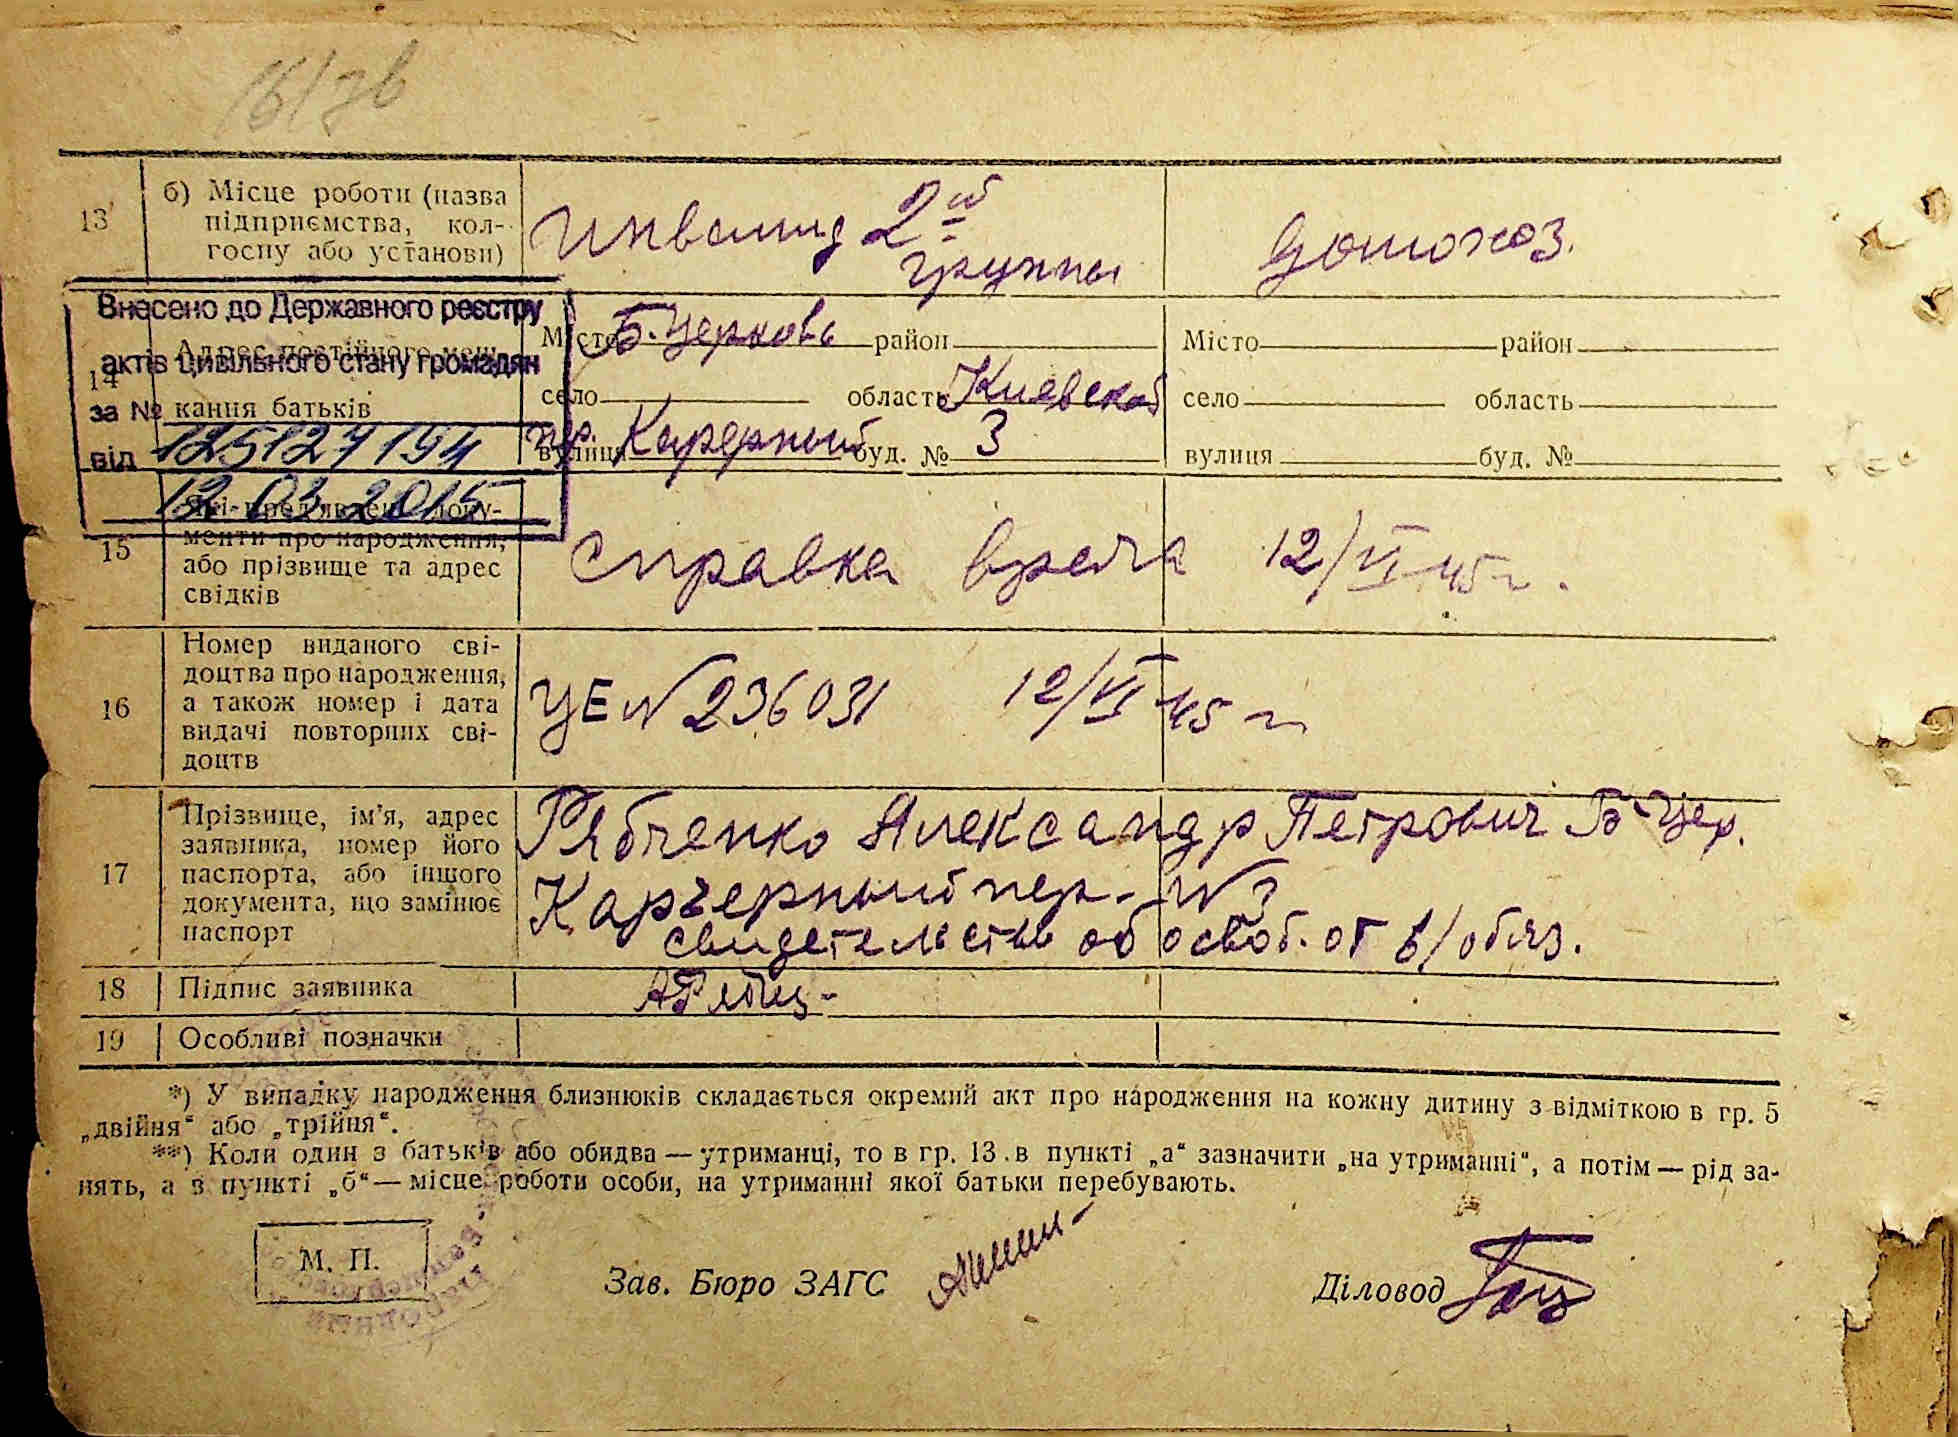 16/зв
13
б) Місце роботи (назва
підприємства, кол-
госпу або установи)
Инвалид 2ой
группы
домохоз.
Внесено до Державного реєстру
актів цивільного стану громадян
за №
від 125127194
12 03 2015
14
Адрес постійного меш-
кання батьків
Місто Б. Церковь район
село область Киевская
пер. вулиця Карерный буд. № 3
Місто район
село область
вулиця буд. №
15
Які пред'явлені доку-
менти про народження,
або прізвище та адрес
свідків
Справка врача 12/VI 45 г.
16
Номер виданого сві-
доцтва про народження,
а також номер і дата
видачі повторних сві-
доцтв
УЕ № 236031 12/VI 45 г
17
Прізвище, ім'я, адрес
заявника, номер його
паспорта, або іншого
документа, що замінює
паспорт
Рябченко Александр Петрович Б-Цер.
Карьерный пер. № 3
свидетельство об освоб. от в/обяз.
18
Підпис заявника
19
Особливі позначки
*) У випадку народження близнюків складається окремий акт про народження на кожну дитину з відміткою в гр. 5
„двійня“ або „трійня“.
**) Коли один з батьків або обидва — утриманці, то в гр. 13 в пункті „а“ зазначити „на утриманні“, а потім — рід за-
нять, а в пункті „б“ — місце роботи особи, на утриманні якої батьки перебувають.
М. П.
Зав. Бюро ЗАГС
Діловод